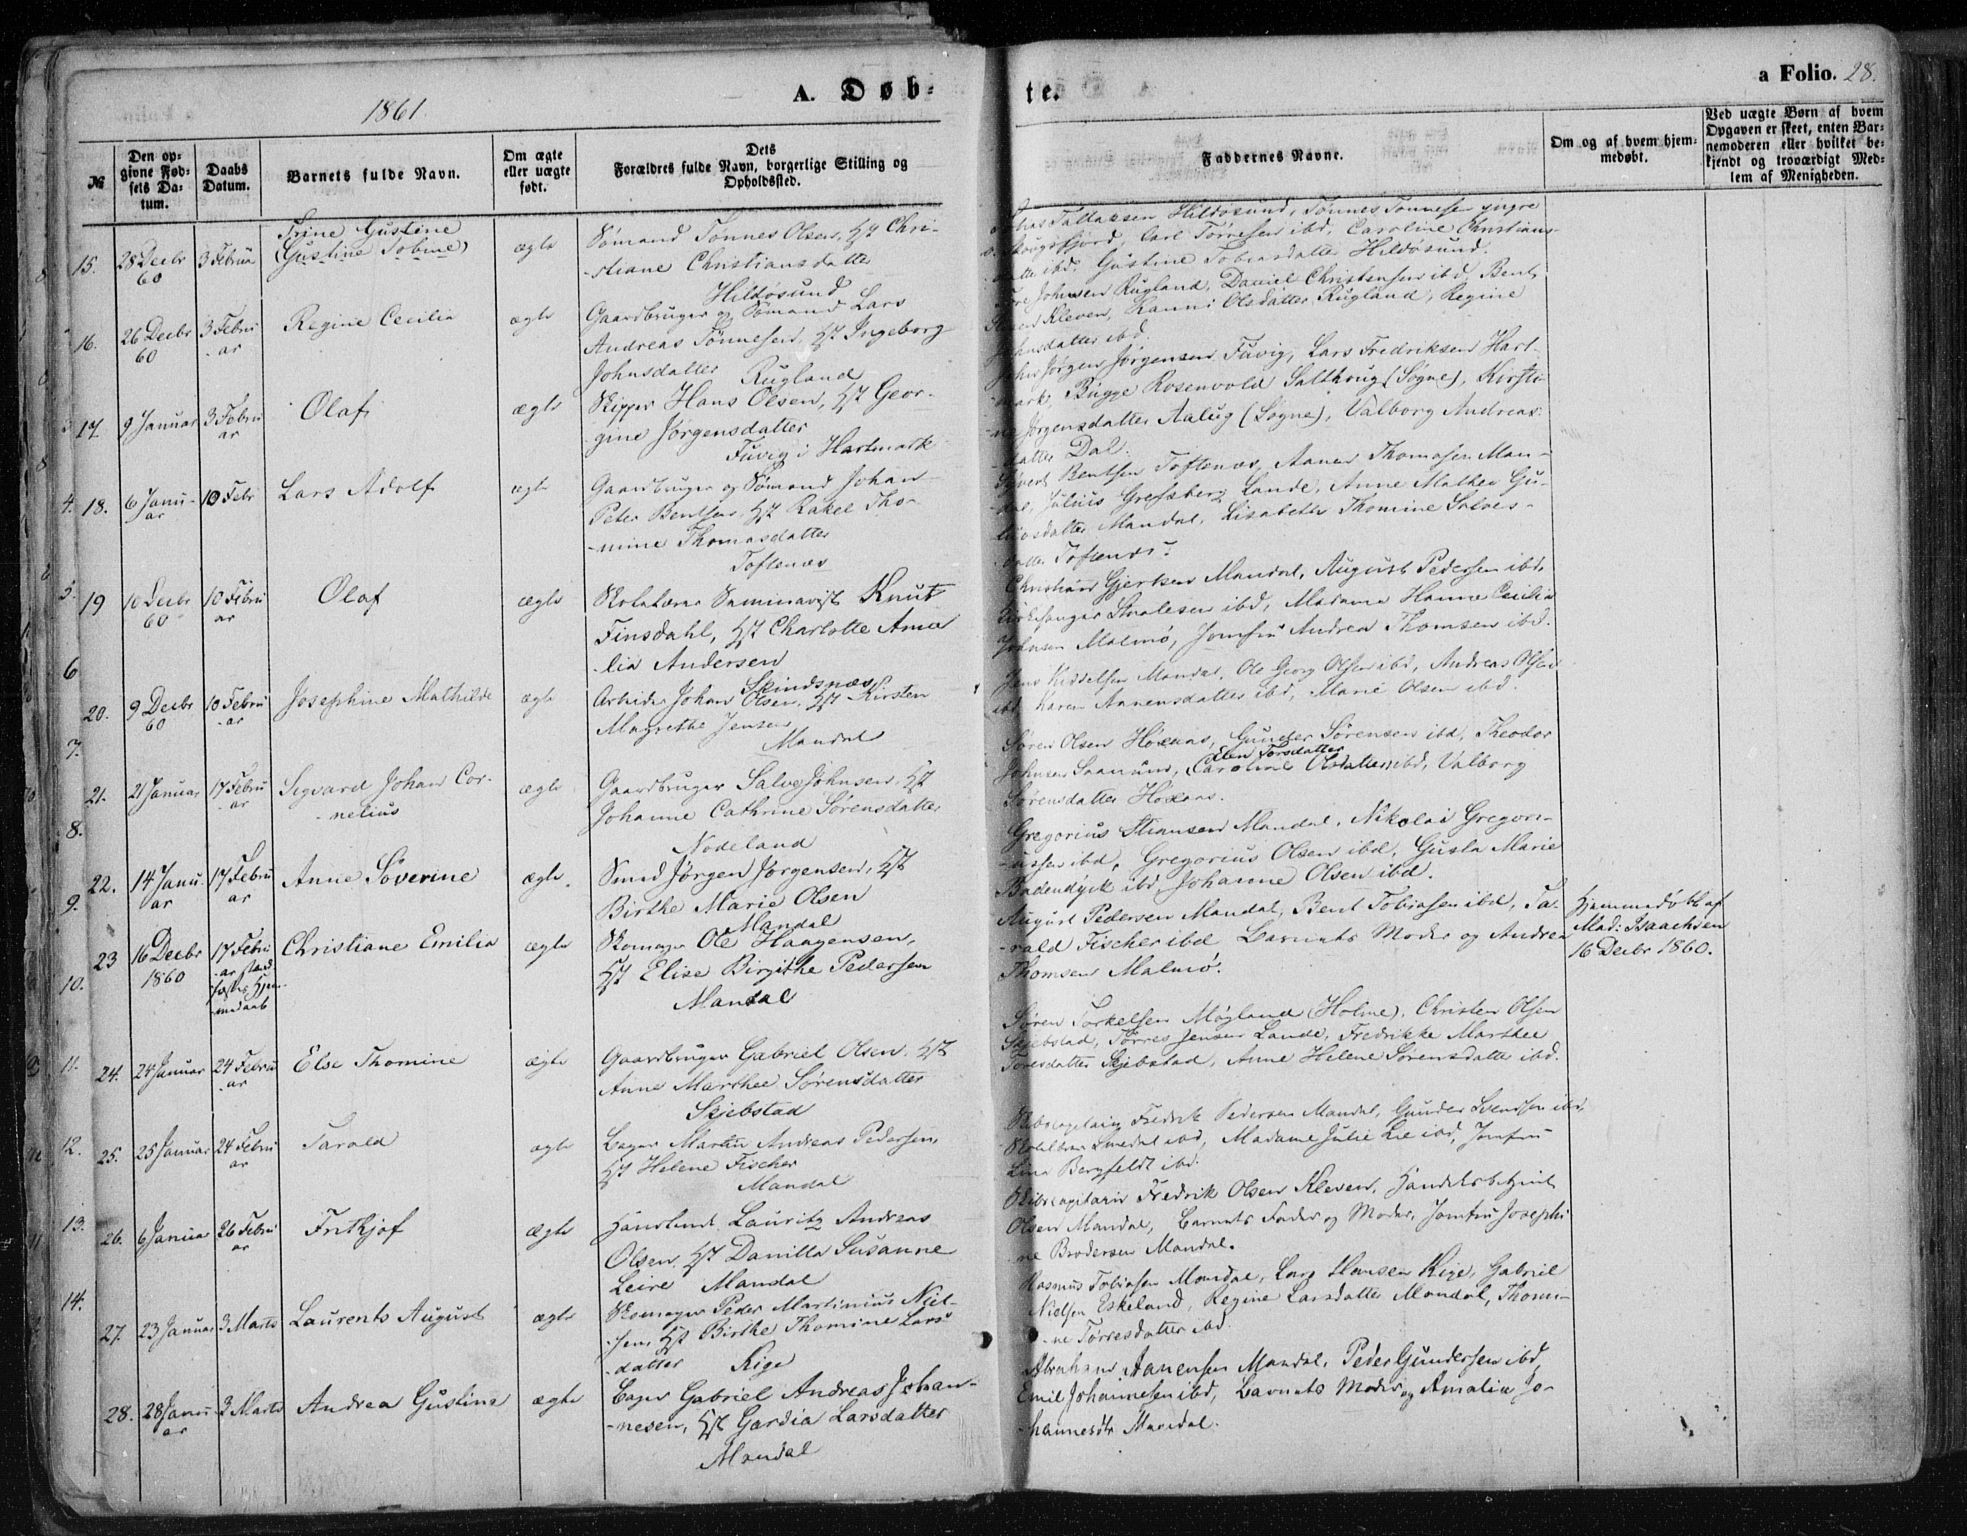 1861.
A. Døb-
te.
a Folio. 28.
№
Den op-
givne Fød-
sels Da-
tum.
Daabs
Datum.
Barnets fulde Navn.
Om ægte
eller uægte
født.
Dets
Forældres fulde Navn, borgerlige Stilling og
Opholdssted.
Faddernes Navne.
Om og af hvem hjem-
medøbt.
Ved uægte Børn af hvem
Opgaven er skeet, enten Bar-
nemoderen eller hvilket be-
kjendt og troværdigt Med-
lem af Menigheden.
15.
28 Decbr
60
3 Februa
Trine Gustine
(Gustine Tobine)
ægte
Sømand Tønnes Olsen, Hst Chri-
stiane Christiansdatter
Hildøsund
Tallaksen Hildøsund, Tønnes Tønnesen yngre
Carl Tørresen ibd, Caroline Christians-
datte ibd. Gustine Tobiasdatter Hildøsund.
16.
26 Decbr
60
3 Febru
ar
Regine Cecilia
ægte
Gaardbruger og Sømand Lars
Andreas Tønnesen, Hst Ingeborg
Johnsdatter Rugland
Johnsen Rugland, Daniel Christensen ibd, Bent
Kleven, Olsdatter Rugland, Regine
Johnsdatter ibd.
17.
9 Januar
3 Febru
ar
Olaf
ægte
Skipper Hans Olsen, Hst Geor-
gine Jørgensdatter
Fuvig i Hartmark
Jørgen Jørgensen Fuvig, Lars Fredriksen Hart-
mark, Bugge Rosenvold Salthrug (Søgne), Kirsti-
ne Jørgensdatter Aalug (Søgne), Valborg Andreas-
datter Dal.
4.
18.
6 Janu-
ar
10 Febr
Lars Adolf
ægte
Gaardbruger og Sømand Johan
Peter Bentsen, Hst Rakel Tho-
mine Thomasdatter
Toftenæs
Bentsen Toftenæs, Aanen Thomasen Man-
dal, Julius Lande, Anne Mathea Gu-
Mandal, Lisabeth Thomine Salves-
datter Toftenæs.
5.
19
10 Decbr
60
10 Febru
ar
Olaf
ægte
Skolelærer Seminarist Knut
Finsdahl, Hst Charlotte Ama
lia Andersen
Skindsnæs
Christiane Gjertsen Mandal, August Pedersen ibd,
Kirkesanger ibd, Madame Hanne Cecilia
Johnsen Malmø, Jomfru Andrea Thomsen ibd.
6
20.
9 Decbr
60
10 Febru
ar
Josephine Mathilde
ægte
Arbeider Johan Olsen, Hst Kirsten
Magrethe Jensen
Mandal
Jens Kiddelsen Mandal, Ole Georg Olsen ibd, Andreas Olsen
ibd, Karen Aanensdatter ibd, Marie Olsen ibd.
7.
21.
21 Januar
17 Febru
ar
Sigvard Johan Cor-
nelius
ægte
Gaardbruger Salve Johnsen, Hst
Johanne Cathrine Sørensdatter
Nodeland
Søren Olsen Hoxaas, Gunder Sørensen ibd, Theodor
Johnsen Saanum, Caroline Olsdatter ibd, Valborg
Elen Torsdatter
Sørensdatter Hoxaas.
8.
22.
14 Janu
ar
17 Febru
ar
Anne Severine
ægte
Smed Jørgen Jørgensen, Hst
Birthe Marie Olsen
Mandal
Gregorius Hansen Mandal, Nikolai Gregori-
ussen ibd, Gregorius Olsen ibd, Gusta Marie
Badendyck ibd, Johanne Olsen ibd.
9.
23
16 Decbr
1860
17 Febru
ar stad
fæstes Hjem-
medaab
Christiane Emilia
ægte
Skomager Ole Haagensen,
Hst Elise Birgithe Pedersen
Mandal
August Pedersen Mandal, Bent Tobiasen ibd, Ta-
rald Fischer ibd, Barnets Moder og Andrea
Thomsen Malmø.
Hjemmedøbt af
Mad: Isaachsen
16 Decbr 1860.
10.
24.
24 Januar
24 Febru
ar
Else Thomine
ægte
Gaardbruger Gabriel Olsen, Hst
Anne Marthee Sørensdatter
Skjebstad
Søren Torkelsen Møgland (Holme), Christen Olsen
Skjebstad, Tørres Jensen Lande, Fredrikke Marthee
Toresdatter Skjebstad, Anne Helene Sørensdatte ibd.
11.
25.
25 Januar
24 Febru
ar
Tarald
ægte
Bager Martin Andreas Pedersen,
Hst Helene Fischer
Mandal
Skibscaptain Fredrik Pedersen Mandal, Gunder Svendsen ibd,
Smedal ibd, Madame Julie Lie ibd, Jomfru
Lina Bergfeldt ibd.
12.
26.
6 Januar
26 Febru
ar
Frithjof
ægte
Handlende Lauritz Andreas
Olsen, Hst Danilla Susanne
Leire Mandal
Skibscapitain Fredrik Olsen Kleven, Handelsbetjent
Olsen Mandal, Barnets Fader og Moder, Jomfru Josephi-
ne Brodersen Mandal.
13.
27.
23 Januar
3 Marts
Laurents August
ægte
Skomager Peder Martinius Niel-
sen, Hst Birthe Thomine Lars
datter Kige
Rasmus Tobiasen Mandal, Lars Hansen Kige, Gabriel
Nielsen Eskeland, Regine Larsdatter Mandal, Thomi-
ne Tørresdatter ibd.
14.
28.
28 Janu
ar
3 Marts
Andrea Gustine
ægte
Bager Gabriel Andreas Johan-
nesen, Hst Gardia Larsdatter
Mandal
Abraham Aanensen Mandal, Peder Gundersen ibd,
Emil Johannesen ibd, Barnets Moder og Amalia Jo-
hannesdtr Mandal.